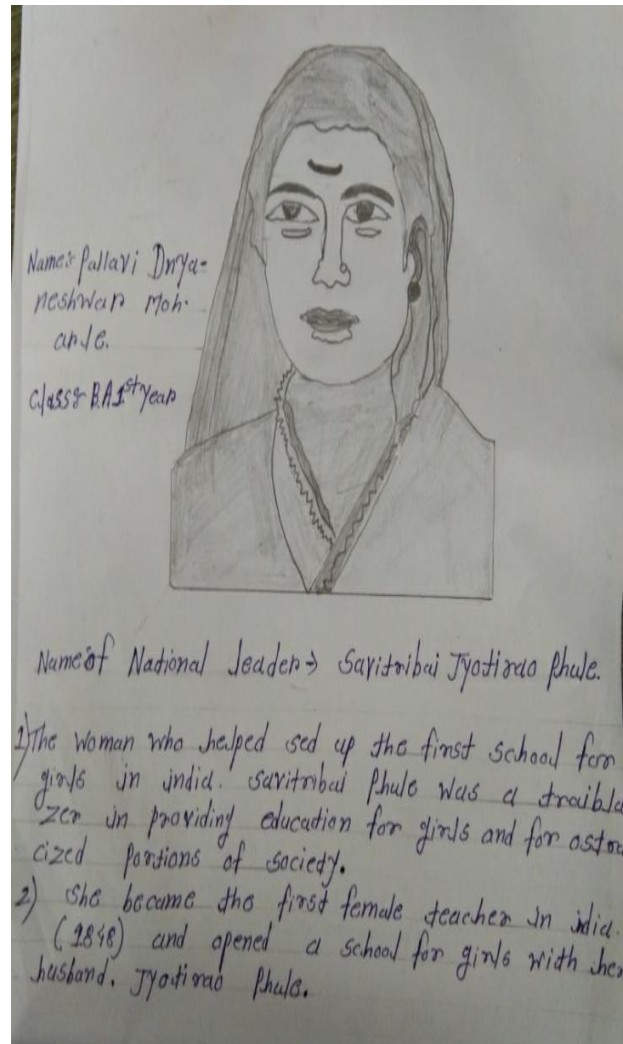 Name:- Pallavi Dnya-
neshwar Moh-
arle.
Class:- B.A 1st year
Name of National leader → Savitribai Jyotirao Phule.
1) The woman who helped sed up the first school for
girls in india. Savitribai Phule was a traibla
zer in providing education for girls and for ostra
cized portions of society.
2) She became the first female teacher in idia.
(1848) and opened a school for girls with her
husband. Jyotirao Phule.